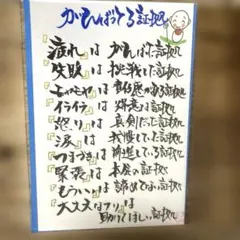 がんばってる証拠
『疲れ』は がんばった証拠
『失敗』は 挑戦した証拠
『イライラ』は
『怒り』は 真剣だった証拠
『涙』は 我慢している証拠
『つまずき』は 前進している証拠
『緊張』は 本気の証拠
『もういい』は 諦めてない証拠
『大丈夫なフリ』は
助けてほしい証拠